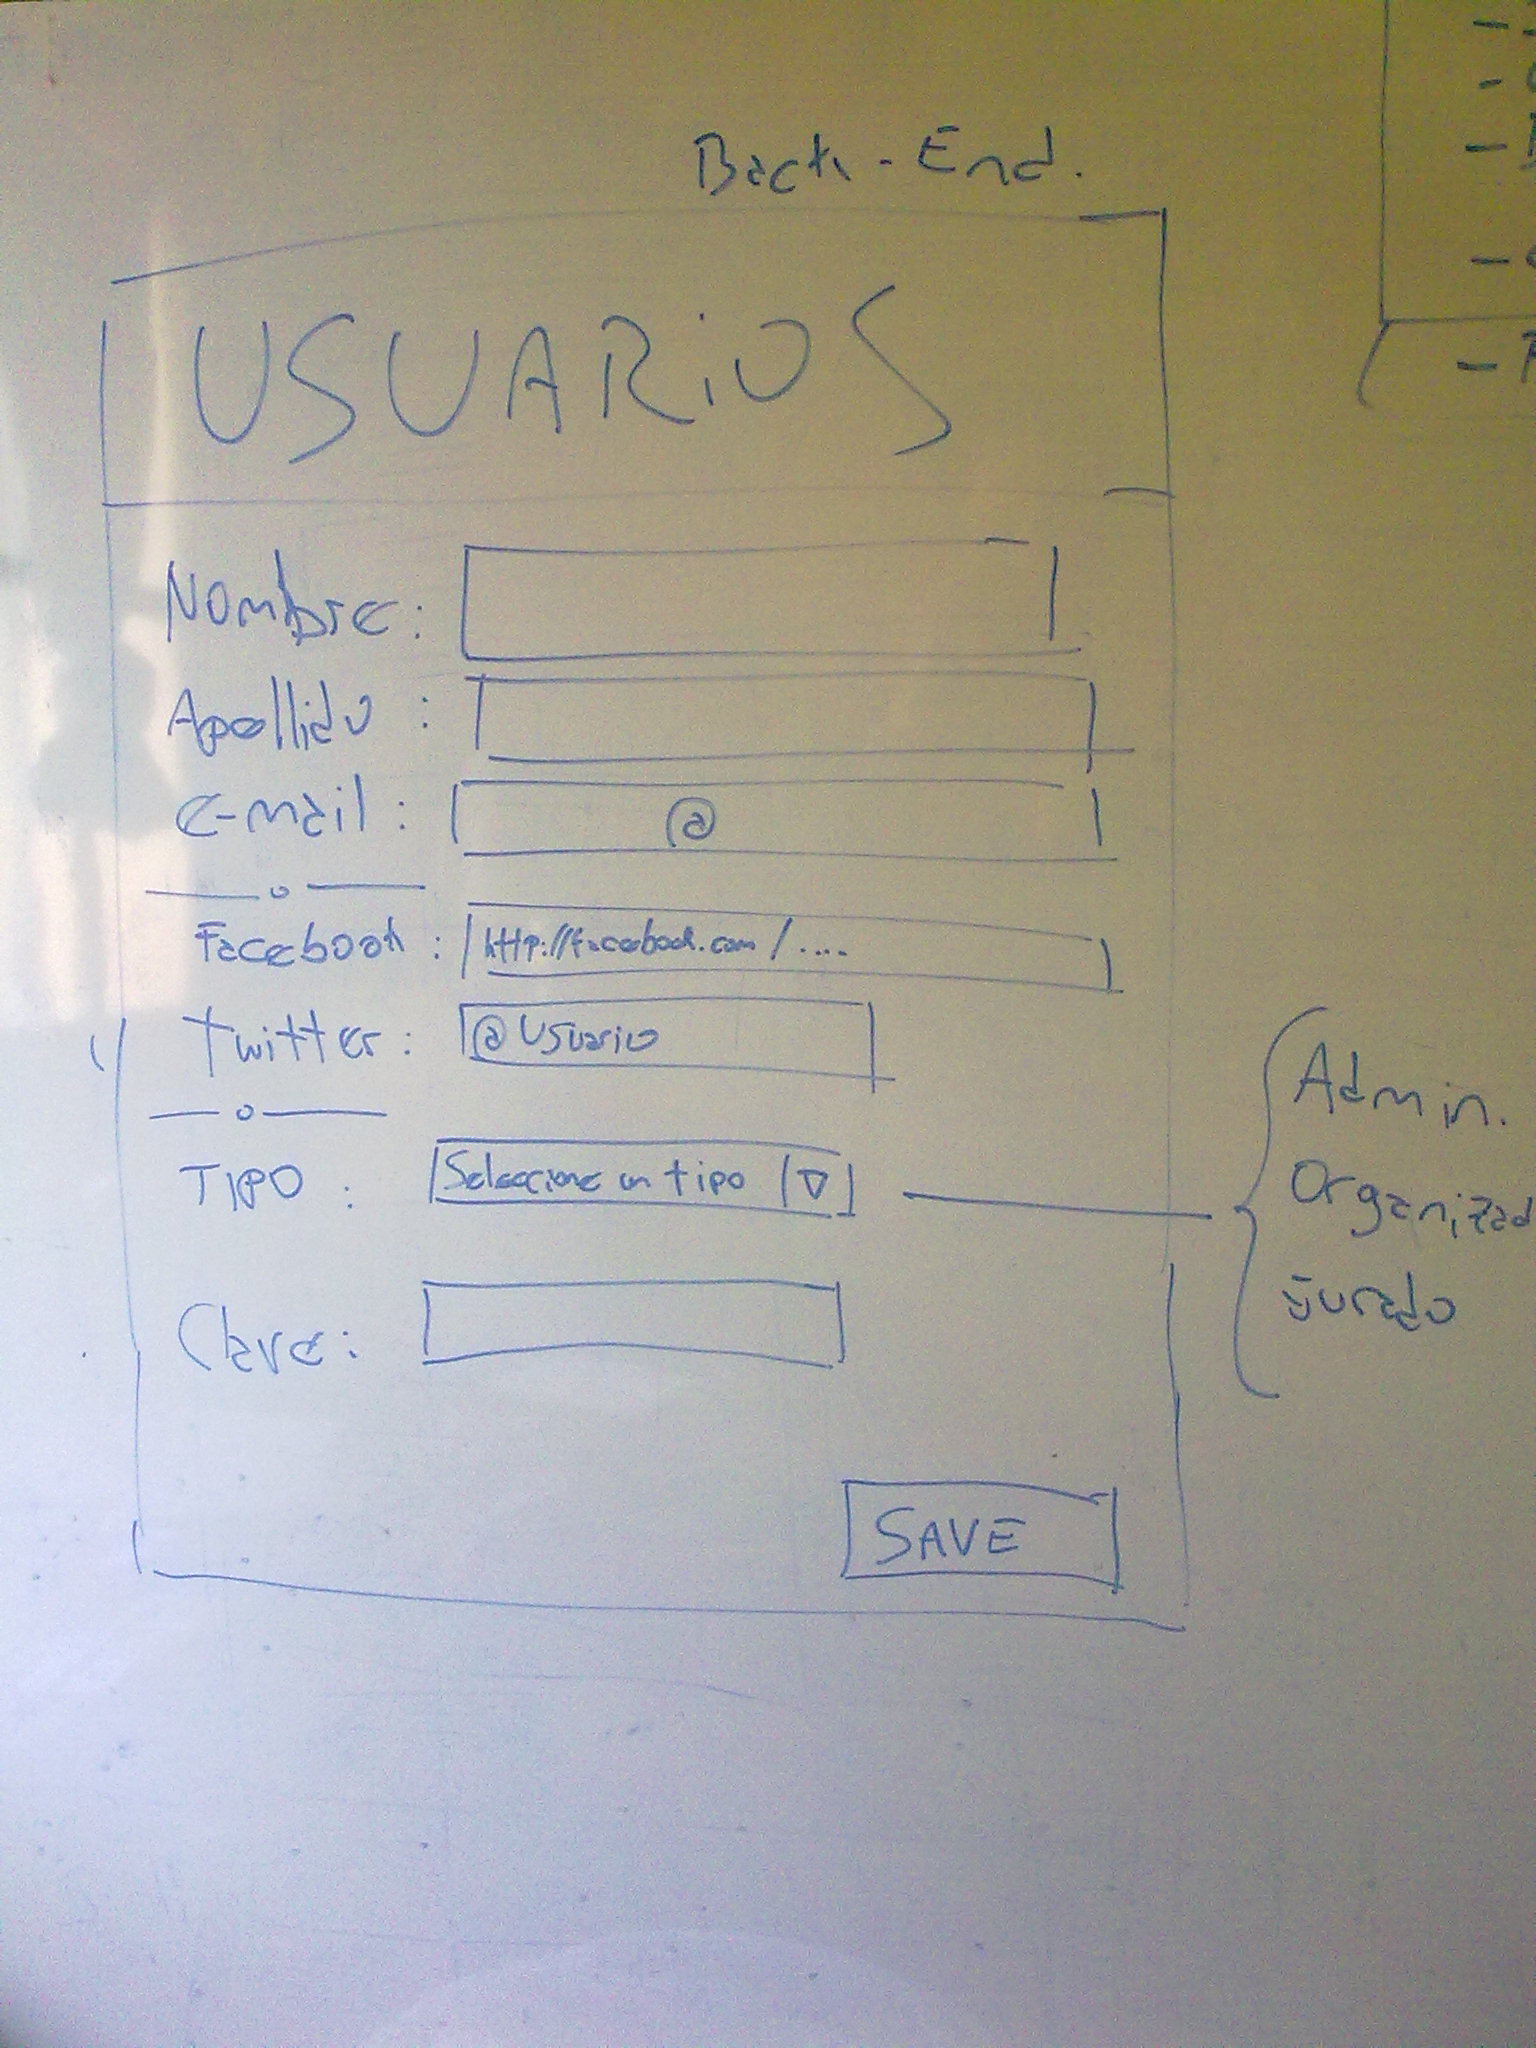 Back-End.
USUARiOS
Nombre:
Apellido :
e-mail : @
Facebook : http://facebook.com/....
Twitter: @Usuario
TIPO : Seleccione un tipo
Clave:
SAVE
Admin.
Organizad
Jurado